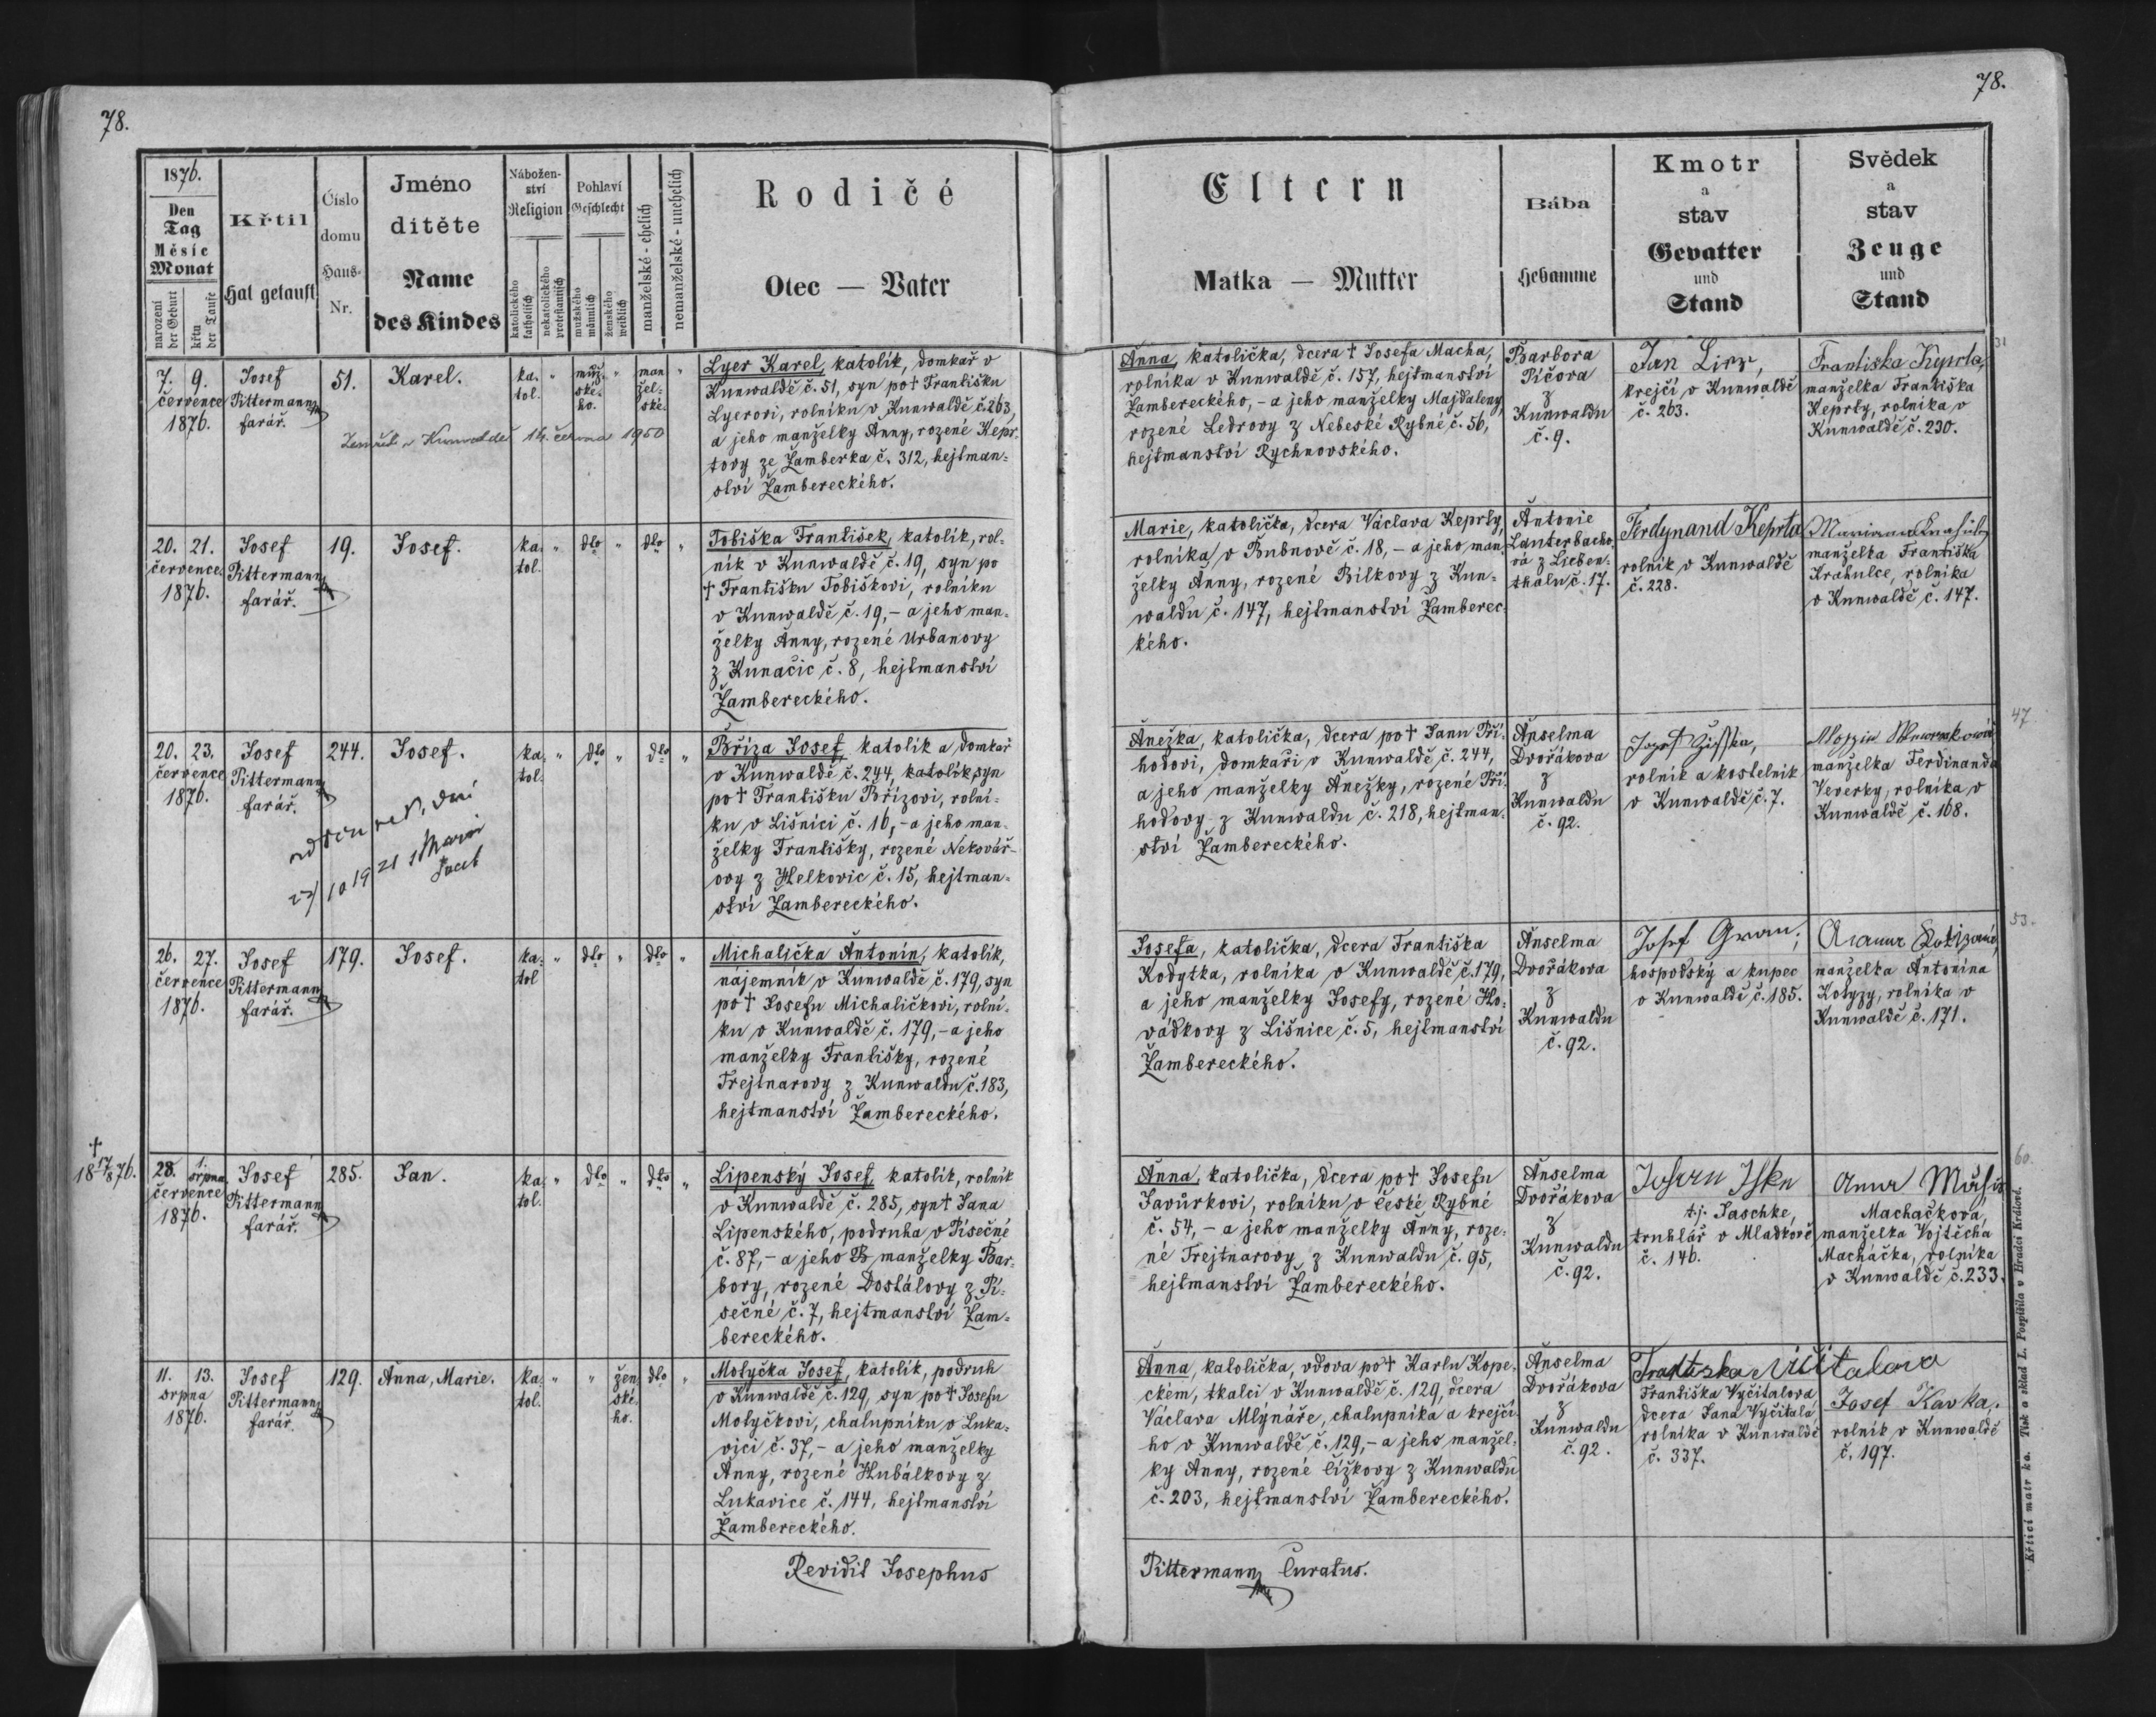 78.
78.
1876.
Den
Tag
Měsíc
Monat
narození
der Geburt
křtu
der Taufe
Křtil
Hat getauft
Číslo
domu
Haus-
Nr.
Jméno
dítěte
Name
des Kindes
Nábožen-
ství
Religion
katolického
katholisch
nekatolického
protestantisch
Pohlaví
Geschlecht
mužského
männlich
ženského
weiblich
manželské - ehelich
nemanželské - unehelich
Rodičé
Otec — Vater
Eltern
Matka — Mutter
Bába
Hebamme
Kmotr
a
stav
Gevatter
und
Stand
Svědek
a
stav
Zeuge
und
Stand
7. 9.
července
1876.
Josef
Pittermann
farář.
51.
Karel.
ka-
tol.
"
muž-
ské-
ho.
"
man
žel-
ské.
"
Lyer Karel, katolík, domkař v
Kunwaldě č. 51, syn po † Františku
Lyerovi, rolníku v Kunwaldě č. 263,
a jeho manželky Anny, rozené Kepr-
tovy ze Žamberka č. 312, hejtman-
ství Žambereckého.
Zemřel v Kunvaldě 14. června 1950
Anna, katolička, dcera † Josefa Macha,
rolníka v Kunwaldě č. 157, hejtmanství
Žambereckého, - a jeho manželky Majdaleny,
rozené Ledrovy z Nebeské Rybné č. 56,
hejtmanství Rychnovského.
Barbora
Pičova
z
Kunwaldu
č. 9.
Jan
krejčí v Kunwaldě
č. 263.
Frantiska Kyprta,
manželka Františka
Keprty, rolníka v
Kunwaldě č. 230.
31
20. 21.
července
1876.
Josef
Pittermann
farář.
19.
Josef.
ka-
tol.
"
dto
"
dto
"
Tobiška František, katolík, rol-
ník v Kunwaldě č. 19, syn po
† Františku Tobiškovi, rolníku
v Kunwaldě č. 19, - a jeho man-
želky Anny, rozené Urbanovy
z Kunačic č. 8, hejtmanství
Žambereckého.
Marie, katolička, dcera Václava Keprty,
rolníka v Bubnově č. 18, - a jeho man-
želky Anny, rozené Bílkovy z Kun-
waldu č. 147, hejtmanství Žamberec-
kého.
Antonie
Lauterbacho-
vá z Lieben-
thalu č. 17.
Ferdynand Keprta
rolník v Kunwaldě
č. 228.
manželka Františka
Krahulce, rolníka
v Kunwaldě č. 147.
20. 23.
července
1876.
Josef
Pittermann
farář.
244.
Josef.
ka-
tol.
"
dto
"
dto
"
Bříza Josef, katolík a domkař
v Kunwaldě č. 244, katolík, syn
po † Františku Břízovi, rolní-
ku v Lišnici č. 16, - a jeho man-
želky Františky, rozené Nekovář-
ovy z Helkovic č. 15, hejtman-
ství Žambereckého.
Anežka, katolička, dcera po † Janu Pří-
hodovi, domkaři v Kunwaldě č. 244,
a jeho manželky Anežky, rozené Pří-
hodovy z Kunwaldu č. 218, hejtman-
ství Žambereckého.
Anselma
Dvořákova
z
Kunwaldu
č. 92.
rolník a kostelník
v Kunwaldě č. 7.
manželka Ferdinanda
Veverky, rolníka v
Kunwaldě č. 168.
47
26. 27.
července
1876.
Josef
Pittermann
farář.
179.
Josef.
ka-
tol
"
dto
"
dto
"
Michalička Antonín, katolík,
nájemník v Kunwaldě č. 179, syn
po † Josefu Michaličkovi, rolní-
ku v Kunwaldě č. 179, - a jeho
manželky Františky, rozené
Trejtnarovy z Kunwaldu č. 183,
hejtmanství Žambereckého.
Josefa, katolička, dcera Františka
Kodytka, rolníka v Kunwaldě č. 179,
a jeho manželky Josefy, rozené Ho-
vádkovy z Lišnice č. 5, hejtmanství
Žambereckého.
Anselma
Dvořákova
z
Kunwaldu
č. 92.
Josef
hospodský a kupec
v Kunwaldě č. 185.
manželka Antonína
Kotyzy, rolníka v
Kunwaldě č. 171.
53.
†
18 17/8 76.
28. 1.
srpna
července
1876.
Josef
Pittermann
farář.
285.
Jan.
ka-
tol.
"
dto
"
dto
"
Lipenský Josef, katolík, rolník
v Kunwaldě č. 285, syn † Jana
Lipenského, podruha v Písečné
č. 87, - a jeho B manželky Bar-
bory, rozené Dostálovy z Pí-
sečné č. 7, hejtmanství Žam-
bereckého.
Anna, katolička, dcera po † Josefu
Javůrkovi, rolníku v České Rybné
č. 54, - a jeho manželky Anny, roze-
né Trejtnarovy z Kunwaldu č. 95,
hejtmanství Žambereckého.
Anselma
Dvořákova
z
Kunwaldu
č. 92.
tj. Jaschke,
truhlář v Mladkově
č. 146.
Machačková,
manželka Vojtěcha
Macháčka, rolníka
v Kunwaldě č. 233.
60.
11. 13.
srpna
1876.
Josef
Pittermann
farář.
129.
Anna, Marie.
ka-
tol.
"
"
žen-
ské-
ho.
dto
"
Motyčka Josef, katolík, podruh
v Kunwaldě č. 129, syn po † Josefu
Motyčkovi, chalupníku v Luka-
vici č. 37, - a jeho manželky
Anny, rozené Hubálkovy z
Lukavice č. 144, hejtmanství
Žambereckého.
Anna, katolička, vdova po † Karlu Kope-
ckém, tkalci v Kunwaldě č. 129, dcera
Václava Mlýnáře, chalupníka a krejčí-
ho v Kunwaldě č. 129, - a jeho manžel-
ky Anny, rozené Čížkovy z Kunwaldu
č. 203, hejtmanství Žambereckého.
Anselma
Dvořákova
z
Kunwaldu
č. 92.
Františka Vyčítalova
dcera Jana Vyčítala,
rolníka v Kunwaldě
č. 337.
Josef Kavka,
rolník v Kunwaldě
č. 197.
Revidit Josephus
Pittermann Curatus.
Křticí matrika. Tisk a sklad L. Pospíšila v Hradci Králové.